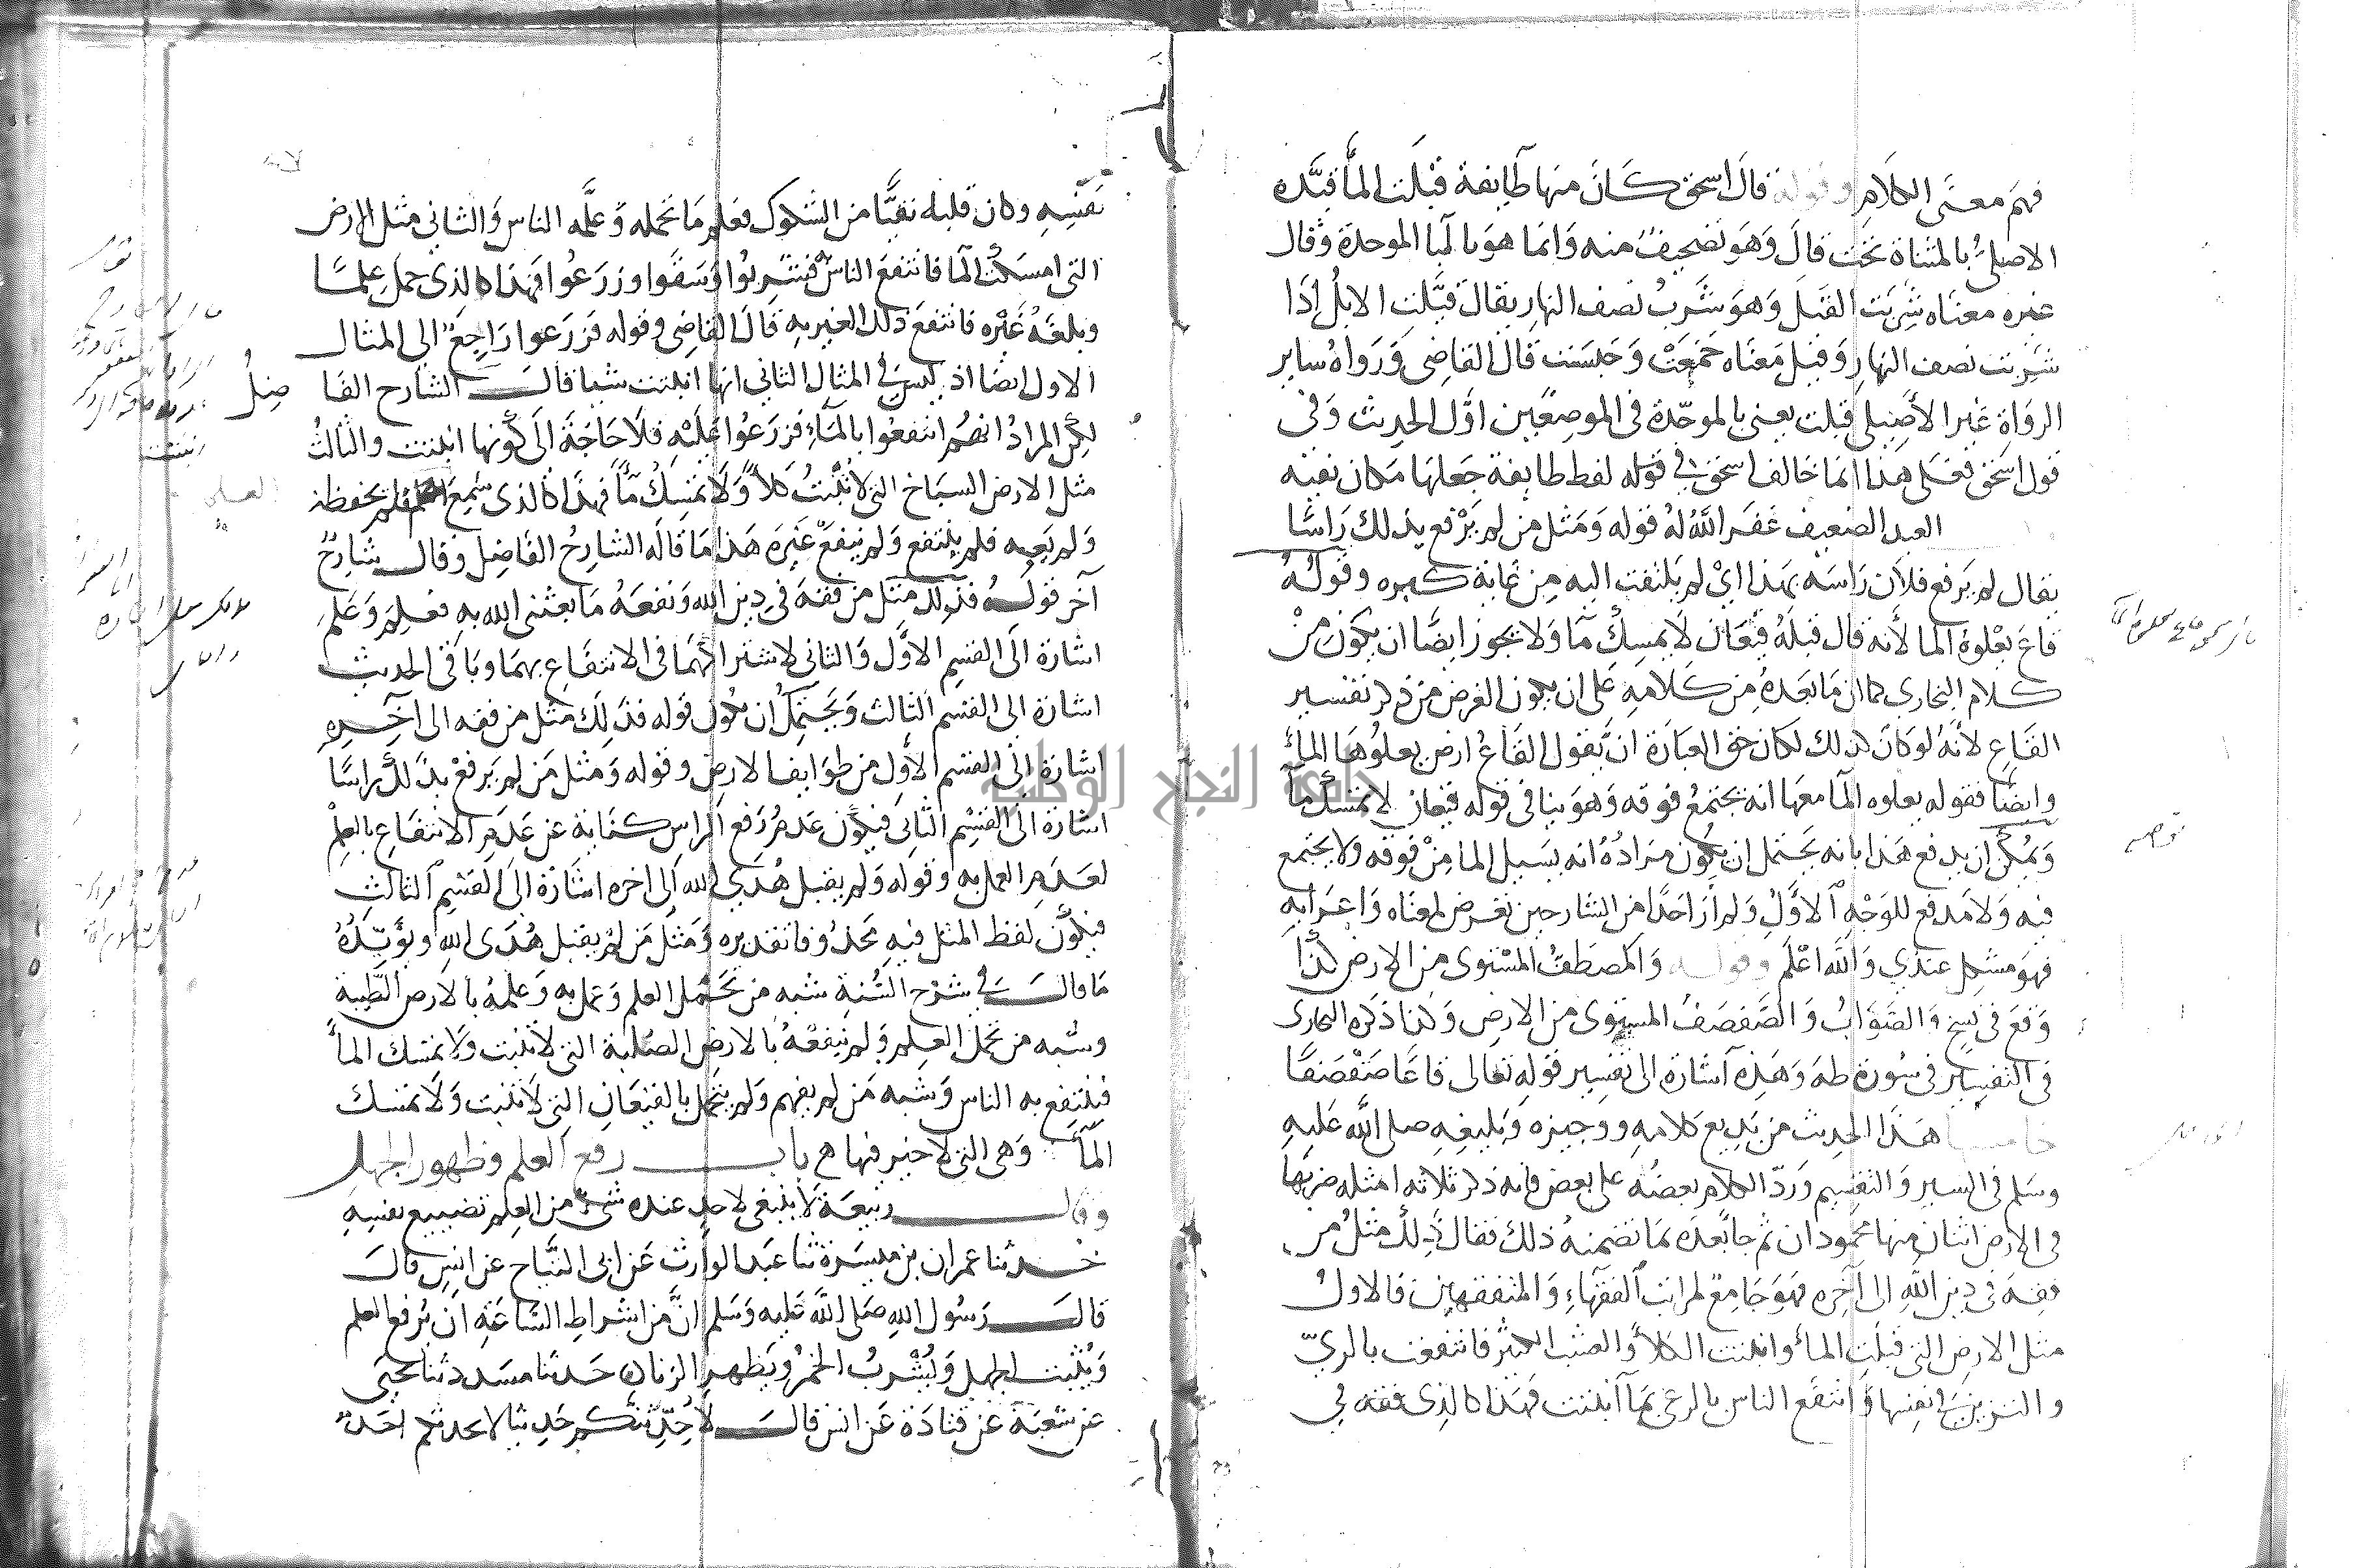 فهم معنى الكلام وقوله قال اسحق كان منها طايفة قبلت الماء قيده
الاصيلي بالمثناة تحت قال وهو تصحيف منه وانما هو بالبا الموحدة وقال
غيره معناه شربت القيل وهو شرب نصف النهار يقال قيلت الابل اذا
شربت نصف النهار وقيل معناه جمعت وحبست قال القاضى ورواه ساير
الرواة غير الأصيلي قبلت يعنى بالموحدة فى الموضعين اول الحديث وفى
قول اسحق فعلى هذا انما خالف اسحق في قوله لفظ طايفة جعلها مكان نقية
العبد الضعيف غفر الله له قوله ومثل من لم يرفع بذلك راسا
يقال لم يرفع فلان راسه بهذا اي لم يلتفت اليه من غاية كبره وقوله
قاع يعلوه الما لأنه قال قبله قيعان لا يمسك ما ولا يجوز ايضا ان يكون من
كلام البخاري كما ان ما بعده من كلامه على ان يكون الغرض من ذكر تفسير
القاع لانه لو كان كذلك لكان حق العبارة ان يقول القاع ارض يعلوها الماء
وايضا فقوله يعلوه الما معها انه يجتمع فوقه وهو ينافى قوله قيعان لا تمسك ما
ويمكن ان يدفع هذا بانه يحتمل ان يكون مراده انه يسيل الما من فوقه ولا يجتمع
فيه ولا مدفع للوجه الاول ولم أر احدا من الشارحين تعرض لمعناه واعرابه
فهو مشكل عندي والله اعلم وقوله والمصطف المستوى من الارض كذا
وقع فى نسخ والصواب والصفصف المستوى من الارض وكذا ذكره البخارى
فى التفسير فى سورة طه وهذه اشارة الى تفسير قوله تعالى قاعا صفصفا
خامسها هذا الحديث من بديع كلامه ووجيزه وبليغه صلى الله عليه
وسلم فى السبر والتقسيم ورد الكلام بعضه على بعض فانه ذكر ثلاثة امثله ضربها
فى الارض اثنان منها محمودان ثم جا بعده بما تضمنه ذلك فقال ذلك مثل من
فقه فى دين الله الى آخره فهو جامع لمراتب الفقهاء والمتفقهين فالاول
مثل الارض التى قبلت الماء وانبتت الكلأ والعشب الكثير فانتفعت بالري
والتزين في انفسها وانتفع الناس بالرعى بما انبتت فهذا كالذى فقه في
نفسه وكان قلبه نقيا من الشكوك فعلم ما تحمله وعلمه الناس والثانى مثل الارض
التى امسكت الما فانتفع الناس فشربوا وسقوا وزرعوا فهذا كالذى حمل علما
وبلغه غيره فانتفع ذلك الغير به قال القاضى وقوله فزرعوا راجع الى المثال
الاول ايضا اذ ليس في المثال الثانى انها انبتت شيا قال الشارح الفاضل
لكن المراد انهم انتفعوا بالماء فزرعوا عليه فلا حاجة الى كونها انبتت والثالث
مثل الارض السباخ التى لا تنبت كلأ ولا تمسك ماء فهذا كالذى سمع العلم فلم يحفظه
ولم يعيه فلم ينتفع ولم ينفع غيره هذا ما قاله الشارح الفاضل وقال شارح
آخر قوله فذلك مثل من فقه فى دين الله ونفعه ما بعثنى الله به فعلم وعلم
اشارة الى القسم الاول والثانى لاشتراكهما فى الانتفاع بهما وباقى الحديث
اشارة الى القسم الثالث ويحتمل ان يكون قوله فذلك مثل من فقه الى آخره
اشارة الى القسم الأول من طوايف الارض وقوله ومثل من لم يرفع بذلك راسا
اشارة الى القسم الثانى فيكون عدم رفع الراس كناية عن عدم الانتفاع بالعلم
لعدم العمل به وقوله ولم يقبل هدي الله الى اخره اشارة الى القسم الثالث
فيكون لفظ المثل فيه محذوفا تقديره ومثل من لم يقبل هدى الله ويؤيده
ما قال في شرح السنة شبه من تحمل العلم وعمل به وعلمه بالارض الطيبة
وشبه من تحمل العلم ولم ينفعه بالارض الصلبة التى لا تنبت ولا تمسك الماء
فينتفع به الناس وشبه من لم يفهم ولم يتحمل بالقيعان التى لا تنبت ولا تمسك
الماء وهى التى لا خير فيها باب رفع العلم وظهور الجهل
وقال ربيعة لا ينبغى لاحد عنده شئ من العلم تضييع نفسه
حدثنا عمران بن ميسرة ثنا عبد الوارث عن ابى التياح عن انس قال
قال رسول الله صلى الله عليه وسلم ان من اشراط الساعة ان يرفع العلم
ويثبت الجهل ويشرب الخمر ويظهر الزنا حدثنا مسدد ثنا يحيى
عن شعبة عن قتادة عن انس قال لأحدثنكم حديثا لا يحدثكم احد
جامعة النجاح الوطنية